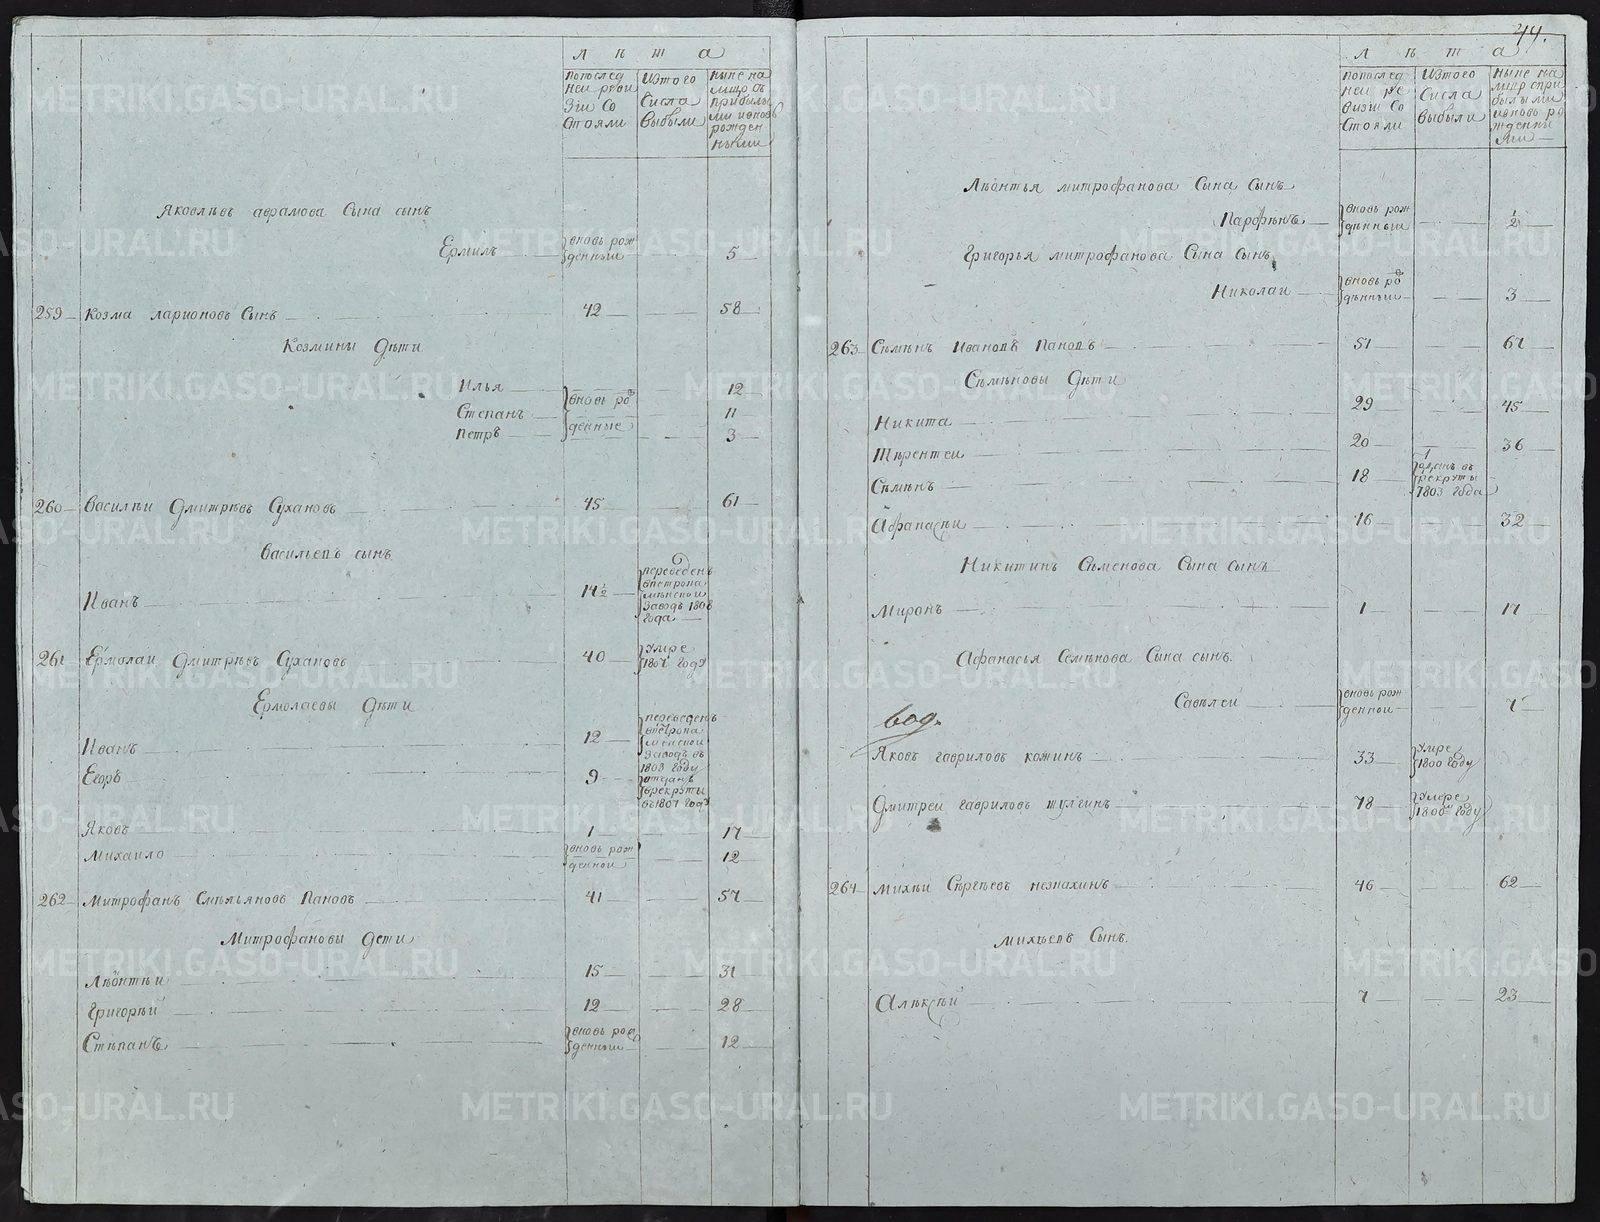 лѣта
попослед ней реви зіи Со Стояли
Изтого Числа Выбыли
ныне на лицо съ прибылы ми ивновь рожден ными
Яковлѣвъ аврамова Сына сынъ
Ермилъ вновь рож денныи 5
259 Козма ларионовъ Сынъ 42 58
Козмины Дѣти
Илья 12
Степанъ вновь ро 11
Петръ денные 3
260 Василѣи Дмитрѣвъ Сухановъ 45 61
Васильевъ сынъ
Иванъ 14½ переведенъ
впетрока
мѣнскои
Заводъ 1808
года
261 Ермолаи Дмитрѣвъ Сухановъ 40 умре
1807 году
Ермолаевы Дѣти
Иванъ 12 переведенъ
впетрока
менскои
Заводъ въ
1803 году
Егоръ 9 отданъ
врекруты
въ 1807 году
Яковъ 1 17
Михаило вновь рож денной 12
262 Митрофанъ Емельяновъ Пановъ 41 57
Митрофановы Дети
Лѣонтьи 15 31
Григорьй 12 28
Стѣпанъ вновь рож денныи 12
44.
лѣта
попослед ней ре визіи Со Стояли
Изтого Числа выбыли
ныне на лицо спри былыми ивновь ро жденны ми
Лѣонтья митрофанова Сына Сынъ
Парфѣнъ вновь рож дѣнныи ½
Григорья митрофанова Сына Сынъ
Николаи вновь ро дѣнныи 3
263 Сѣмѣнъ Ивановъ Пановъ 51 67
Сѣмѣновы Дѣти
Никита 29 45
Тѣрентеи 20 36
Сѣмѣнъ 18 отданъ въ
рекруты
1803 года
Афанасѣи 16 32
Никитинъ Сѣменова Сына сынъ
Миронъ 1 17
Афанасья Семѣнова Сына сынъ.
Савѣлеи вновь рож денной 7
Яковъ гавриловъ кожинъ 33 умре
1800 году
Дмитреи гавриловъ тулгинъ 78 умре
1800 году
264 михѣи Сѣргѣевъ незнахинъ 46 62
михѣевъ Сынъ.
Алѣксѣй 7 23
METRIKI.GASO-URAL.RU